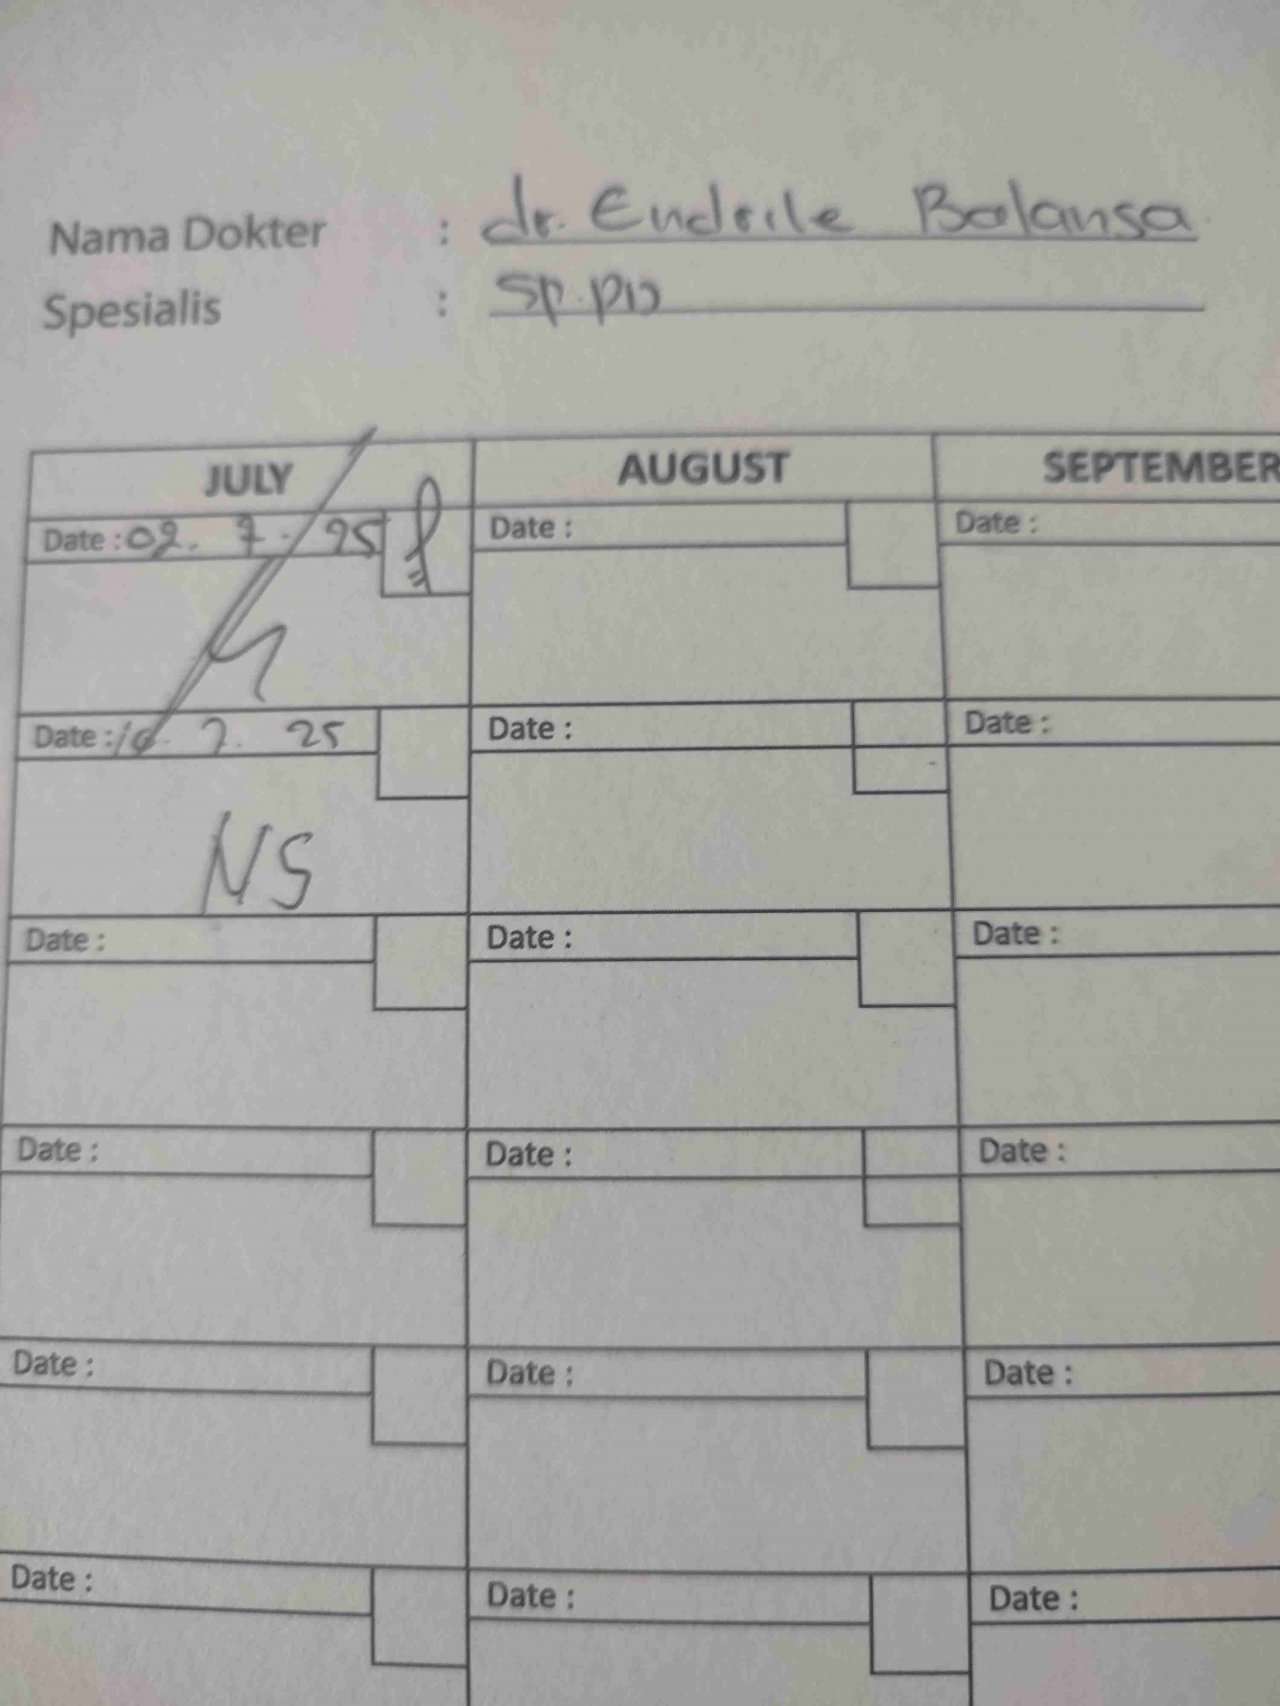 Nama Dokter : dr. Endrile Balansa
Spesialis : Sp.PD
JULY AUGUST SEPTEMBER
Date : 02. 7. 25 Date : Date :
Date : 10. 7. 25 Date : Date :
NS
Date : Date : Date :
Date : Date : Date :
Date : Date : Date :
Date : Date : Date :